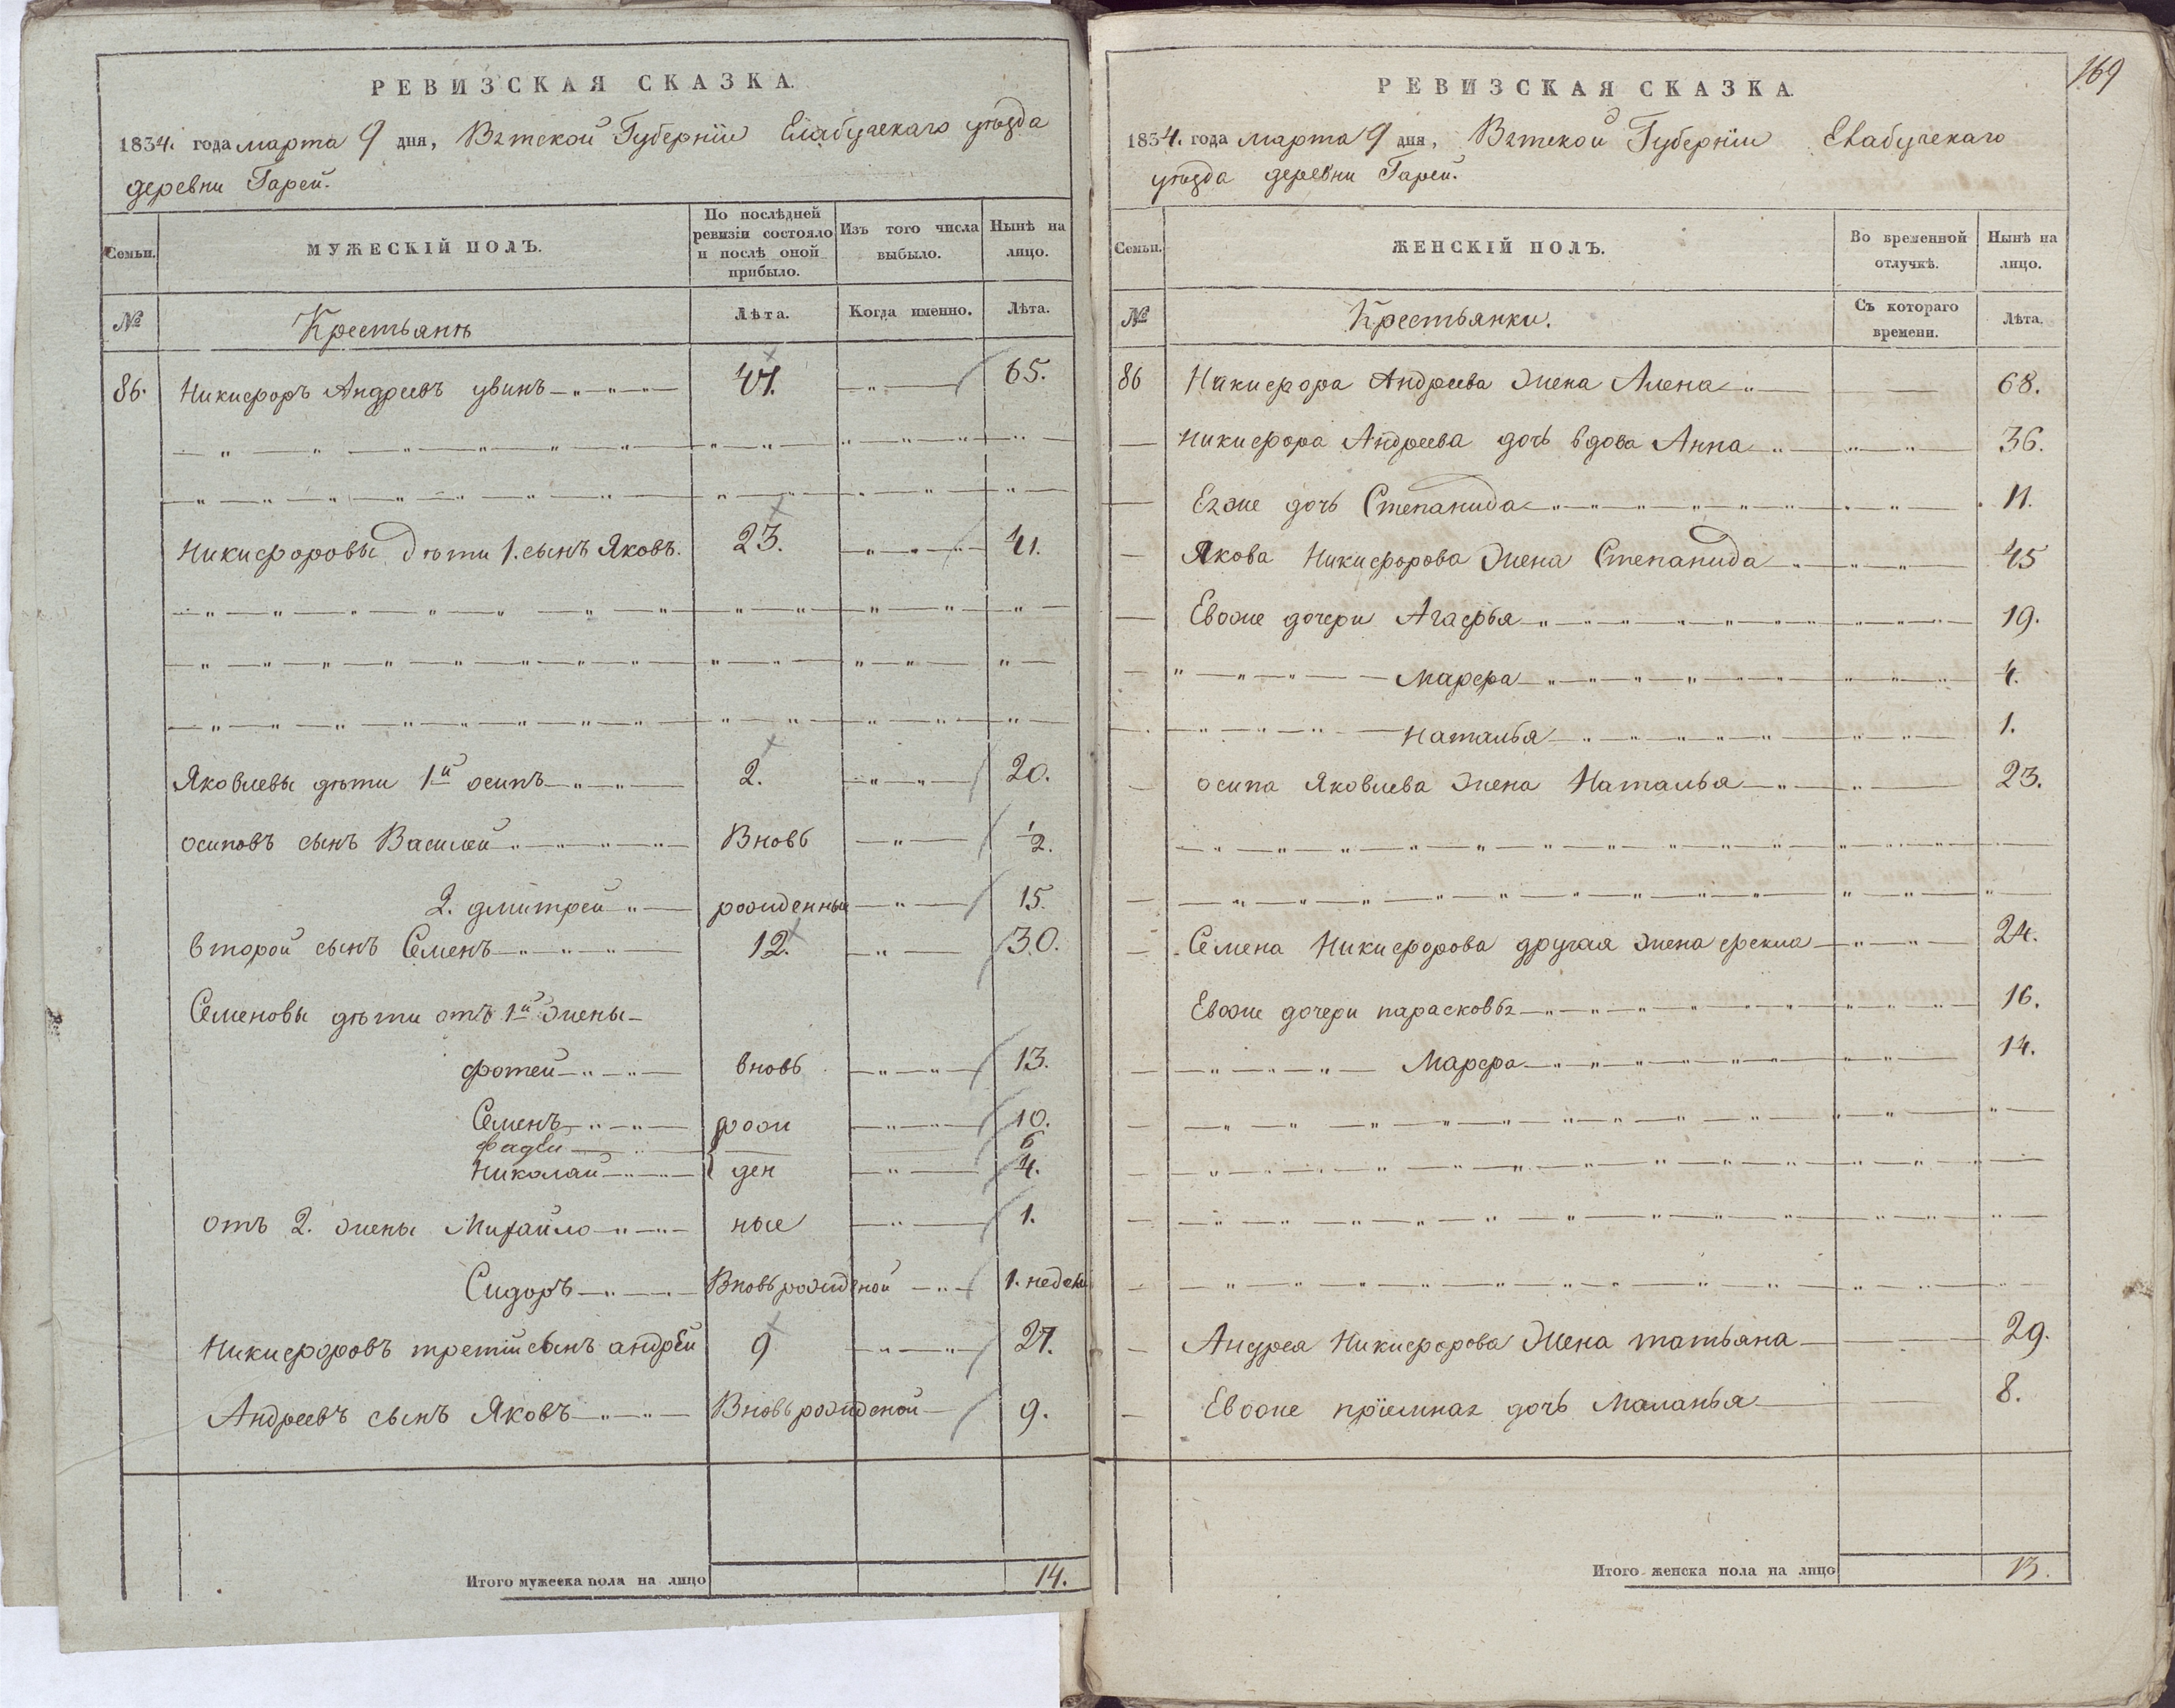 РЕВИЗСКАЯ СКАЗКА.
1834. года марта 9 дня, Вятской Губернïи Елабужскаго уѣзда
деревни Гарей.
Семьи.
МУЖЕСКІЙ ПОЛЪ.
По послѣдней ревизіи состояло и послѣ оной прибыло.
Изъ того числа выбыло.
Нынѣ на лицо.
№
Крестьянѣ
Лѣта.
Когда именно.
Лѣта.
86. Никифоръ Андреевъ увинъ 47. 65.
Никифоровы дѣти 1. сынъ Яковъ. 23. 41.
Яковлевы дѣти 1й осипъ 2. 20.
осиповъ сынъ Василей Вновь 1/2.
2. дмитрей рожденныи 15.
второй сынъ Семенъ 12. 30.
Семеновы дѣти отъ 1й жены
фотей вновь 13.
Семенъ рож 10.
фадѣи 6
Николай ден 4.
отъ 2. жены Михайло ные 1.
Сидоръ Вновь рожденой 1. недели
Никифоровъ третïй сынъ андрей 9 27.
Андреевъ сынъ Яковъ Вновь рожденой 9.
Итого мужеска пола на лицо 14.
169
РЕВИЗСКАЯ СКАЗКА.
1834. года марта 9 дня, Вятской Губернïи Елабужскаго
уѣзда деревни Гарей.
Семьи.
ЖЕНСКІЙ ПОЛЪ.
Во временной отлучкѣ.
Нынѣ на лицо.
№
Крестьянки.
Съ котораго времени.
Лѣта.
86 Никифора Андреева жена Алена 68.
Никифора Андреева дочь вдова Анна 36.
Еяже дочь Степанида 11.
Якова Никифорова жена Степанида 45
Евоже дочери Агафья 19.
Марфа 4.
Наталья 1.
осипа Яковлева жена Наталья 23.
Семена Никифорова другая жена фекла 24.
Евоже дочери парасковья 16.
Марфа 14.
Андрея Никифорова жена татьяна 29.
Евоже прïемная дочь Маланья 8.
Итого женска пола на лицо 13.